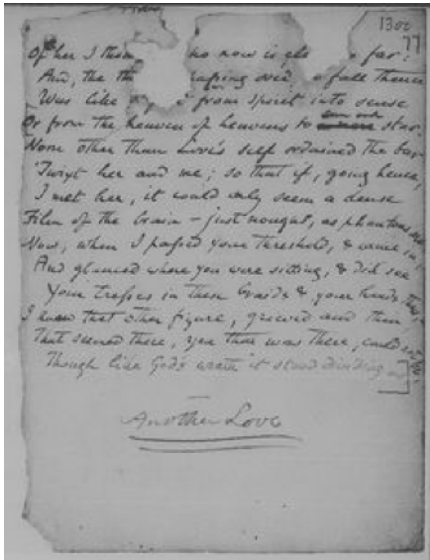 1300
77
Of her I thou who now is els far:
And, the th passing over, a fall thence
Was like from spirit into sense
Or from the heaven of heavens to sun and star.
None other than Love's self ordained the bar
'Twixt her and me; so that if, going hence,
I met her, it could only seem a dense
Film of the brain – just nought, as phantoms are.
Now, when I passed your threshold, & came in,
And glanced where you were sitting, & did see
Your tresses in these braids & your hands thus,
I knew that other figure, grieved and thin
That seemed there, yea that was there, could not be,
Though like God's wrath it stood dividing us.
Another Love